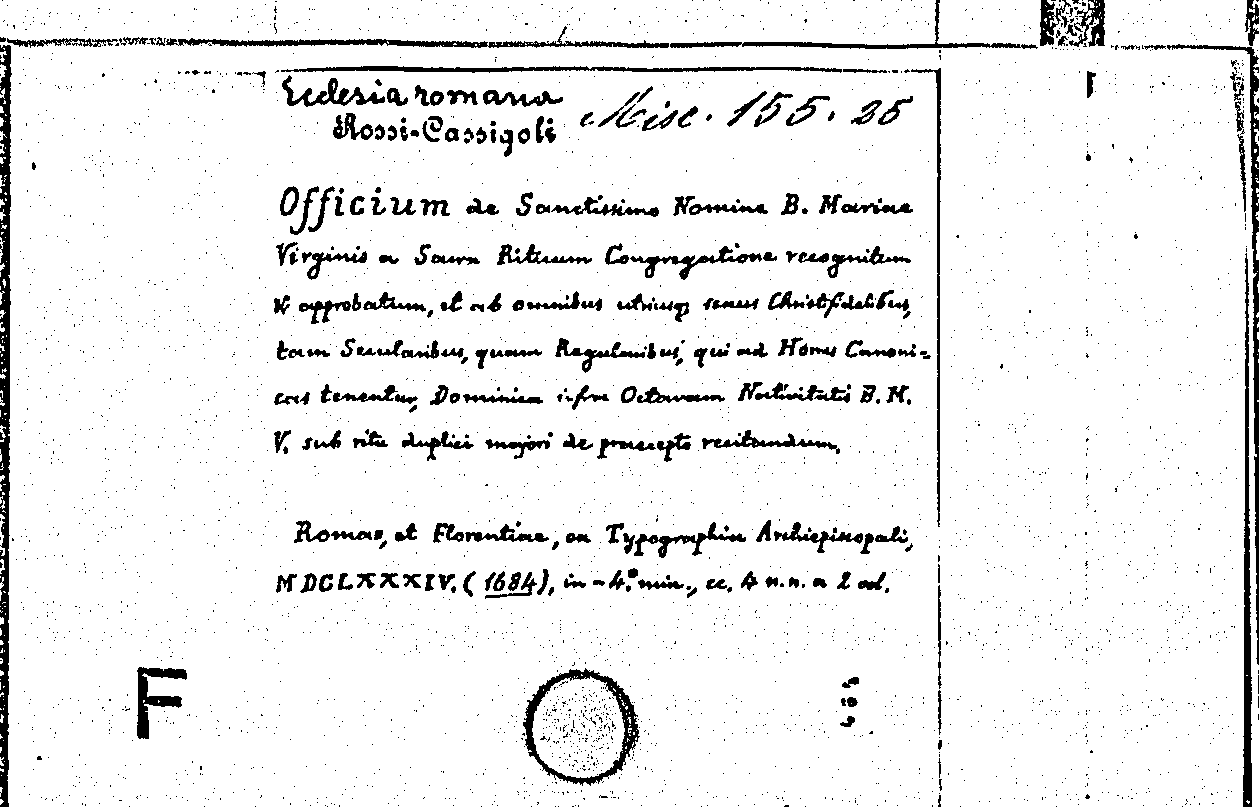 Ecclesia romana
Rossi-Cassigoli
Misc. 155. 25
Officium de Sanctissimo Nomine B. Mariae
Virginis a Sacra Rituum Congregatione recognitum
et approbatum, et ab omnibus utriusq sexus Christifidelibus,
tam Secularibus, quam Regularibus, qui ad Horas Canoni=
cas tenentur, Dominica infra Octavam Nativitatis B. M.
V. sub ritu duplici majori de praecepto recitandum.
Romae, et Florentiae, ex Typographia Archiepiscopali,
MDCLXXXIV. (1684), in-4.° min., cc. 4 n.n. a 2 col.
F